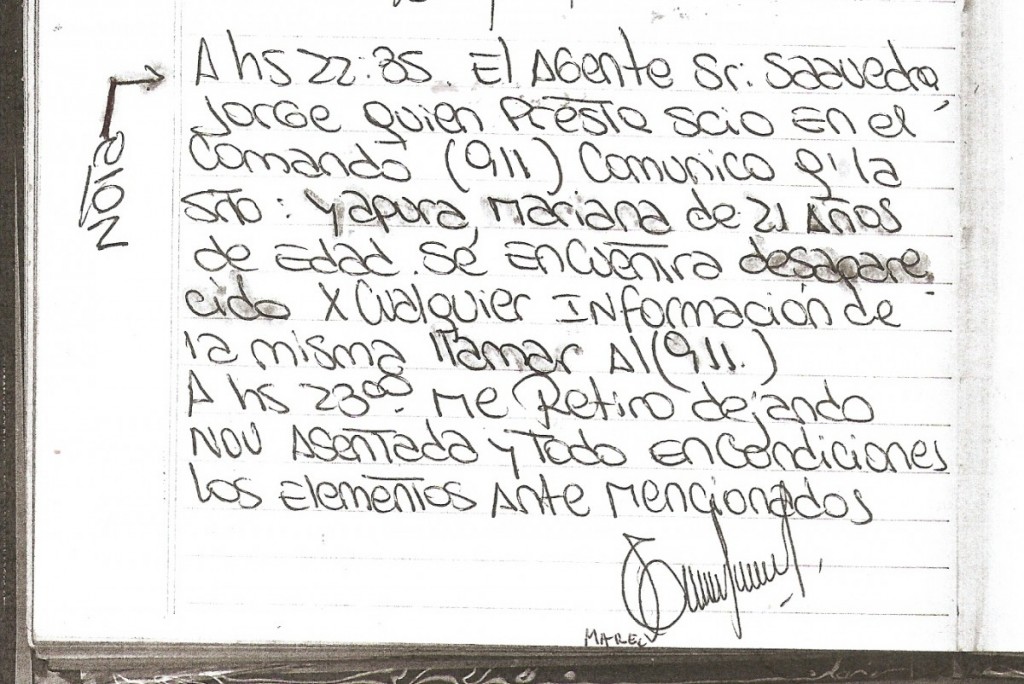 Nota
A hs 22:35. El Agente Sr. Saavedra,
Jorge quien Presta scio En el
Comando (911) Comunico q' la
srta: Yapura, Mariana de 21 Años
de Edad. Se Encuentra desapare
cido X Cualquier Información de
la misma llamar Al (911.)
A hs 23⁰⁰. Me Retiro dejando
Nov Asentada y Todo En Condiciones
los Elementos Ante Mencionados